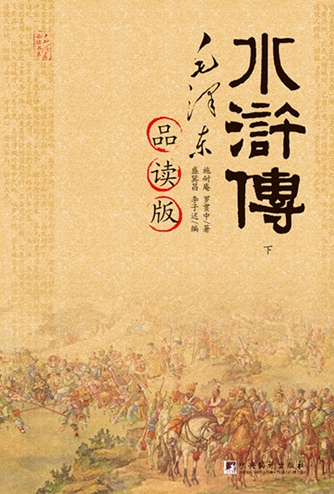 水滸傳
下
毛泽东
品读版
施耐庵 罗贯中/著
盛巽昌 李子迟/编
中央编译出版社